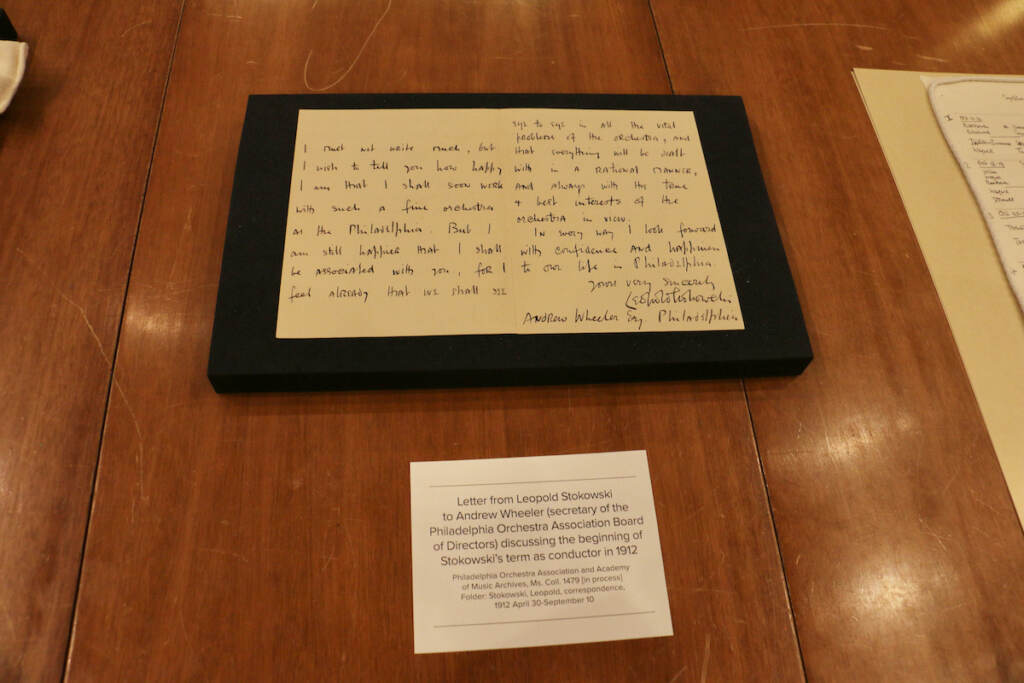 I must not write much, but
I wish to tell you how happy
I am that I shall soon work
with such a fine orchestra
as the Philadelphia. But I
am still happier that I shall
be associated with you, for I
feel already that we shall see
eye to eye in all the vital
problems of the orchestra, and
that everything will be dealt
with in a rational manner,
and always with the true
+ best interests of the
orchestra in view.
In every way I look forward
with confidence and happiness
to our life in Philadelphia.
Yours very sincerely
Leopold Stokowski
Andrew Wheeler Esq. Philadelphia
Letter from Leopold Stokowski
to Andrew Wheeler (secretary of the
Philadelphia Orchestra Association Board
of Directors) discussing the beginning of
Stokowski's term as conductor in 1912
Philadelphia Orchestra Association and Academy
of Music Archives, Ms. Coll. 1479 [in process]
Folder: Stokowski, Leopold, correspondence,
1912 April 30-September 10